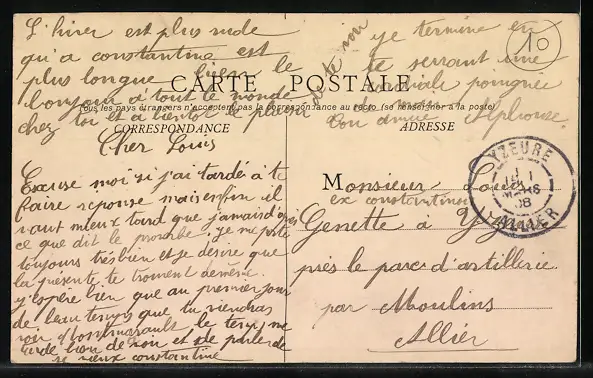 L'hiver est plus rude
qu'a constantine est
plus longue bien le
bonjour à tout le monde
chez toi et a bientot le plaisir
de te voir
je termine en
te serrant une
cordiale poignée
Ton amie Alphonse.
10
CARTE POSTALE
Tous les pays étrangers n'acceptent pas la correspondance au recto (se renseigner à la poste)
CORRESPONDANCE
ADRESSE
Cher Louis
Excuse moi si j'ai tardé à te
faire reponse mais enfin il
vaut mieux tard que jamais d'après
ce que dit le proverbe je me porte
toujours très bien et je désire que
la présente te trouvent de même.
j'espère bien que au premier jour
de beau temps que tu viendras
voir Montmarault le temps me
tarde bon de voir et de parler de
se vieux constantine
Monsieur Louis
ex constantinois
Genette à Yzeure
près le parc d'artillerie
par Moulins
Allier
YZEURE
MARS
08
ALLIER